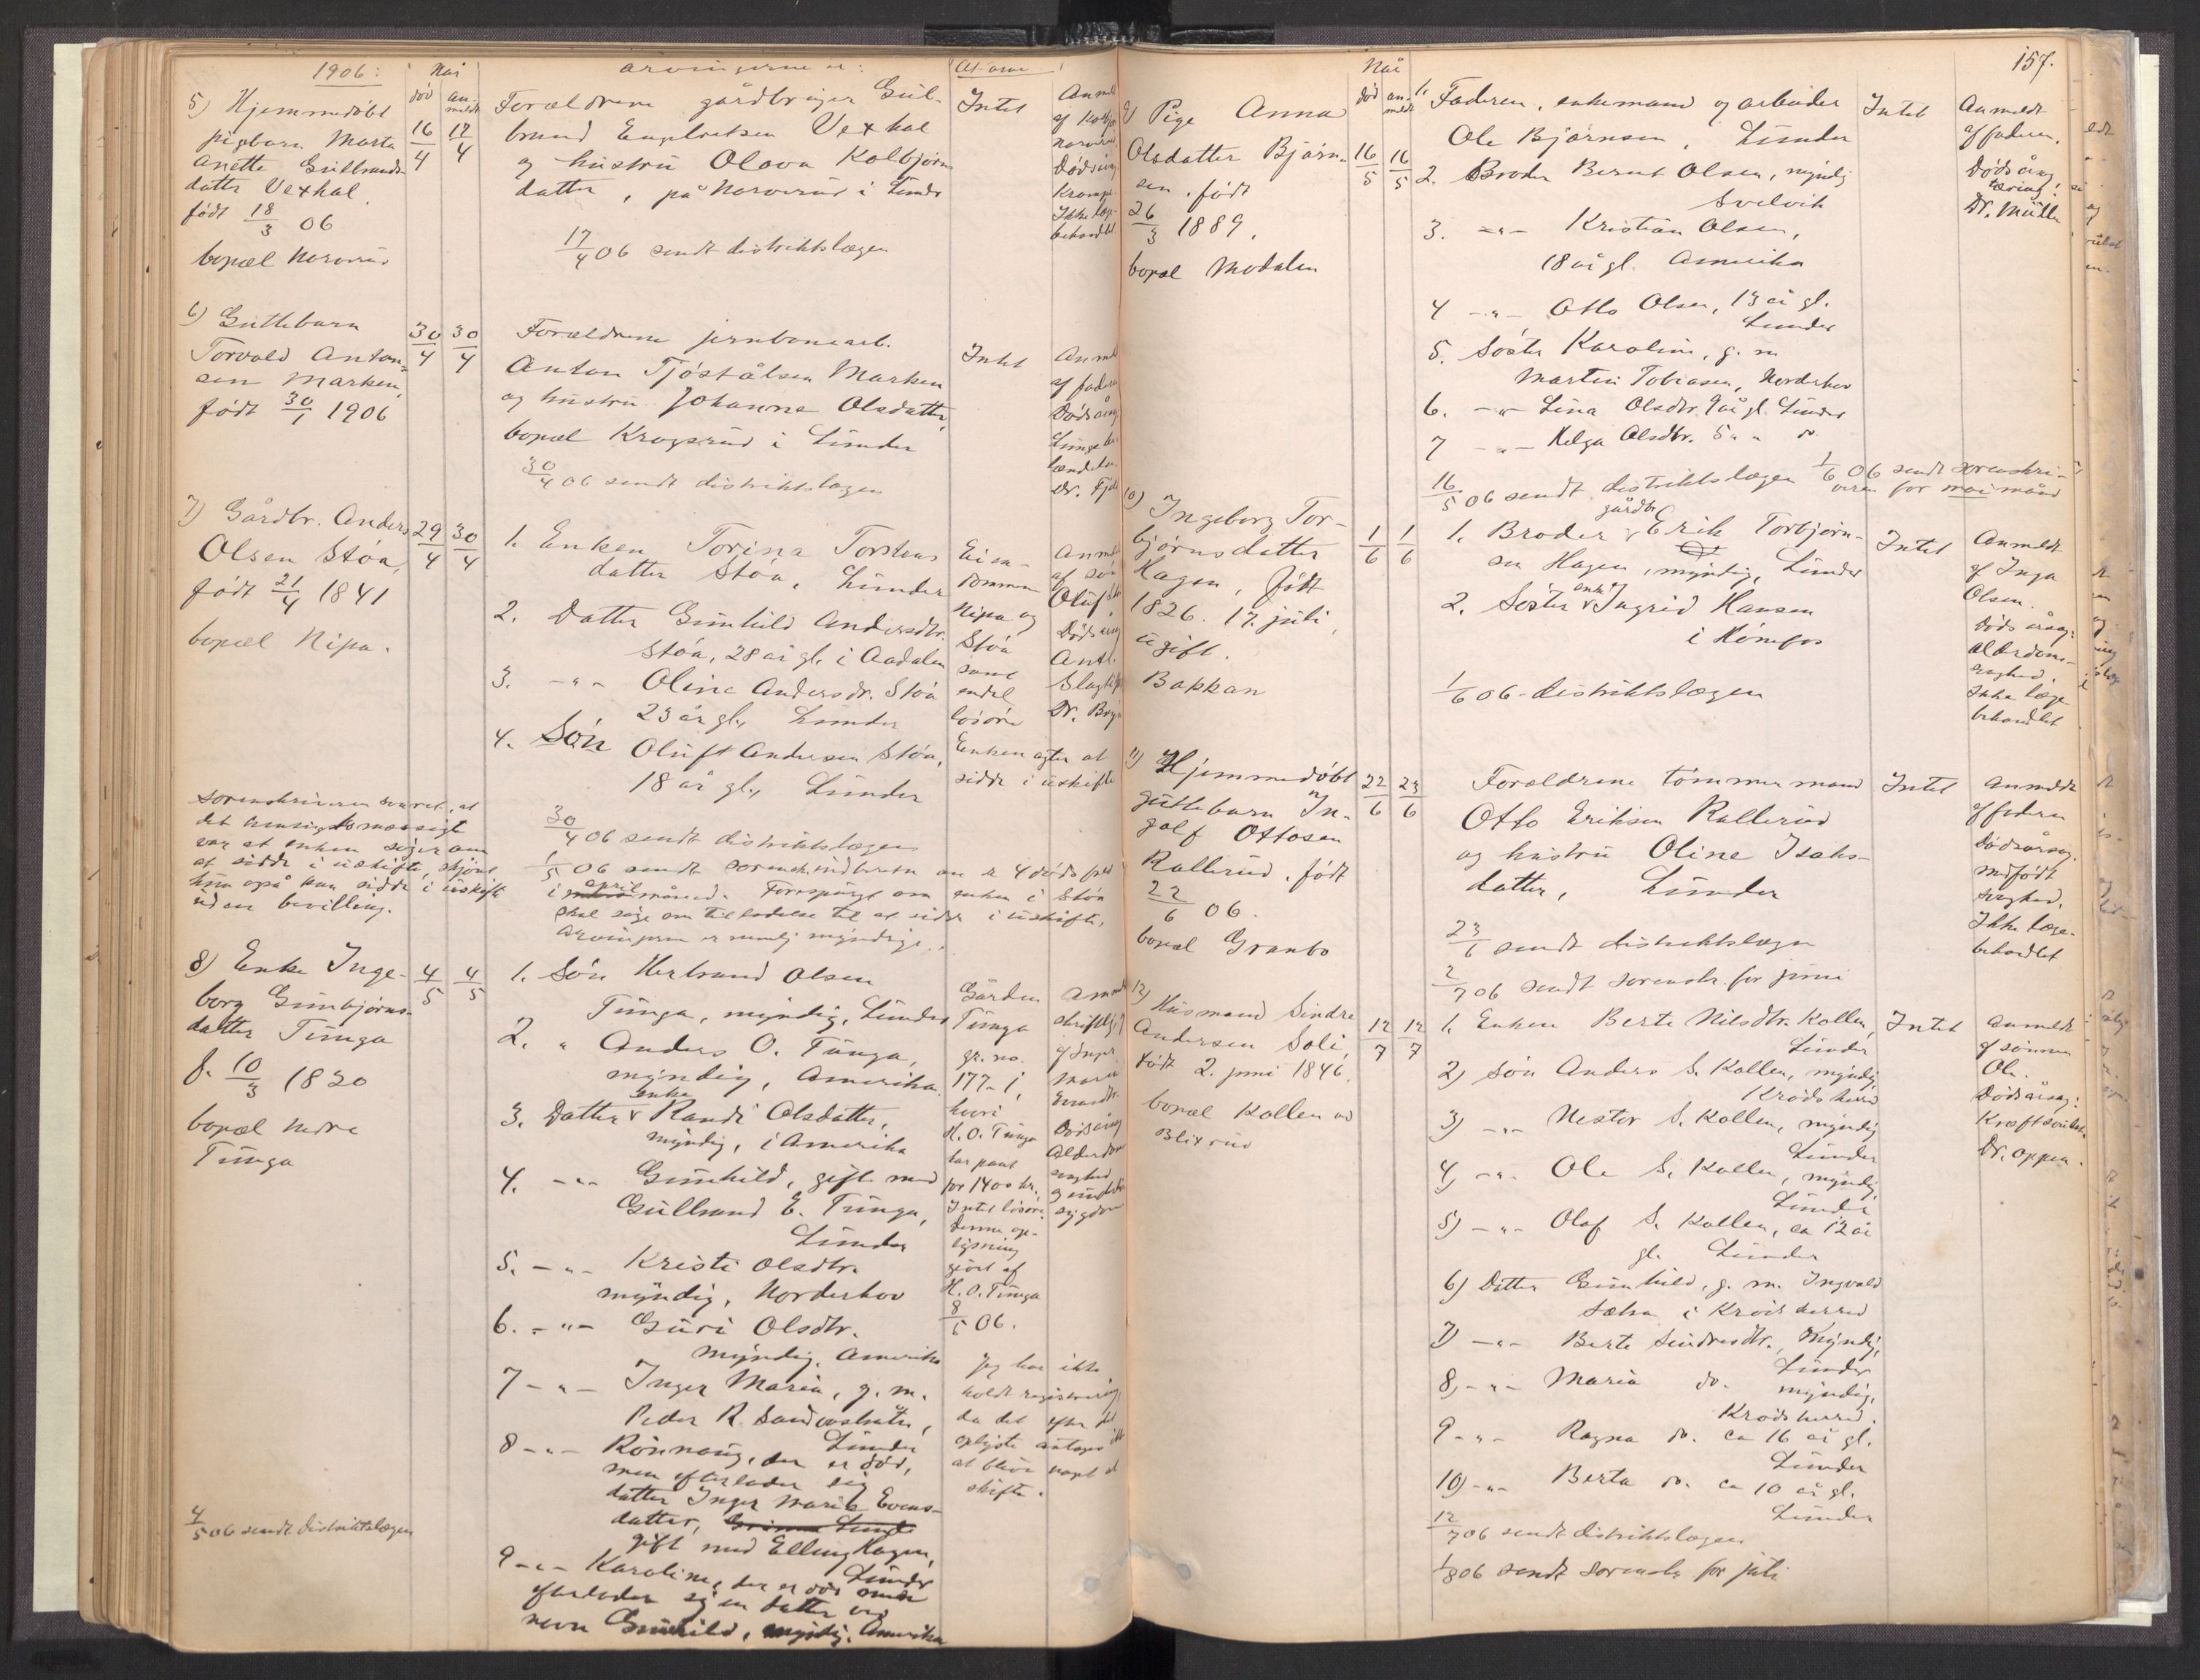 1906:
Når
død
an-
meldt
arvingerne er:
5) Hjemmedøbt
pigbarn Marta
Anette Gulbrands-
datter Vexhal
født 18/3 06
bopæl Norverud
16/4
17/4
Forældrene gårdbruger Gul-
brand Engbretsen Vexhal
og hustru Olava Kolbjørns
datter, på Norverud i Lunder
17/4 06 sendt distriktslægen
Intet
6) Guttebarn
Torvald Anton-
sen Marken,
født 30/1 1906
30/4
30/4
Forældrene jernbanearb.
Anton Tjøstålsen Marken
og hustru Johanne Olsdatter,
bopæl Krogsrud i Lunder
30/4 06 sendt distriktslægen
Intet
Dr. Fjeld
7) Gårdbr. Anders
Olsen Støa,
født 21/4 1841
bopæl Nipa.
29/4
30/4
1. Enken Torina Torstens
datter Støa, Lunder
2. Datter Gunhild Andersdtr.
Støa, 28 år gl. i Aadalen
3. -"- Oline Andersdr. Støa
23 år gl., Lunder
4. Søn Oluf Andersen Støa,
18 år gl., Lunder
Eien-
dommen
Nipa og
Støa
samt
endel
løsøre
Enken agter at
sidde i uskifte
Sorenskriveren svaret, at
det hensigtsmæssigt
var at enken søger om
at sidde i uskifte, skjønt
hun også kan sidde i uskifte
uden bevilling.
30/4 06 sendt distriktslægen
1/5 06 sendt sorenskr. indberetn. om 4 dødsfald
i april måned. Forespurgt om enken i Støa
skal søge om tilladelse til at sidde i uskifte,
Arvingerne er nemlig myndige.
8) Enke Inge-
borg Gunbjørns-
datter Tunga
f. 10/3 1820
bopæl nedre
Tunga
4/5
4/5
1. Søn Herbrand Olsen
Tunga, myndig, Lunder
2. " Anders O. Tunga,
myndig, Amerika.
3. Datter enke Randi Olsdatter,
myndig, i Amerika
4. -"- Gunhild, gift med
Gulbrand E. Tunga,
Lunder
5. -"- Kristi Olsdtr.
myndig, Norderhov
6. -"- Guri Olsdtr.
myndig, Amerika
7 -"- Inger Maria, g. m.
Peder R. ,
Lunder
8 -"- Rønnaug, der er død,
men efterlader sig
datter Inger Marie Evens-
datter,
gift med Elling Hagen,
Lunder
9 -"- Karoline, der er død men
efterlader sig en datter ved
navn Gunhild, myndig, Amerika
Gården
Tunga
gr. no.
177-1,
hvori
H. O. Tunga
har pant
for 1400 kr.
Intet løsøre.
Denne op-
lysning
givet af
H. O. Tunga
8/5 06.
Jeg har ikke
holdt registrering,
da det efter det
oplyste antages ikke
at blive noget at
skifte.
4/5 06 sendt distriktslægen
157.
Når
død
an-
meldt
9) Pige Anna
Olsdatter Bjørn-
sen, født
26/3 1889,
bopæl Modalen
16/5
16/5
1. Faderen, enkemand og arbeider
Ole Bjørnsen, Lunder
2. Broder Bernt Olsen, myndig
Svelvik
3. -"- Kristian Olsen,
18 år gl. Amerika
4 -"- Otto Olsen, 13 år gl.
Lunder
5. Søster Karoline, g. m
Martin Tobiasen, Norderhov
6. -"- Lina Olsdtr. 9 år gl. Lunder
7 -"- Helga Olsdtr. 5 " " do.
16/5 06 sendt distriktslægen 1/6 06 sendt sorenskri-
veren for mai månd
Intet
Anmeldt
af faderen.
Dødsårsag,
tæring.
Dr. Müller
10) Ingeborg Tor-
bjørnsdatter
Hagen, født
1826. 17. juli,
ugift.
Bakkan
1/6
1/6
1. Broder gårdbr. Erik Torbjørn-
sen Hagen, myndig, Lunder
2. Søster enke Ingrid Hansen
i Hønefos
1/6 06 - distriktslægen
Intet
Anmeldt
af Inga
Olsen.
Dødsårsag:
alderdoms-
svaghed,
Ikke læge-
behandlet
11) Hjemmedøbt
guttebarn In-
golf Ottosen
Rallerud, født
22/6 06.
bopæl Granbo
22/6
23/6
Forældrene tømmermand
Otto Eriksen Rallerud
og hustru Oline Isaks-
datter, Lunder
23/6 sendt distriktslægen
2/7 06 sendt sorenskr. for juni
Intet
Anmeldt
af faderen
Dødsårsag.
medfødt
svaghed,
Ikke læge-
behandlet
12) Husmand Sindre
Andersen Soli,
født 2. juni 1846.
bopæl Kollen u.
Blixrud
12/7
12/7
1. Enken Berte Nilsdtr. Kollen,
Lunder
2) Søn Anders S. Kollen, myndig,
Krødsherred
3) -"- Nestor S. Kollen, myndig
Lunder
4) -"- Ole S. Kollen, myndig,
Lunder
5) -"- Olaf S. Kollen, ca 12 år
gl. Lunder
6) Datter Gunhild, g. m. Ingvald
Sætra i Krødsherred
7) -"- Berte Sindresdtr., Myndig,
Lunder
8) -"- Maria do. myndig,
Krødsherred.
9 -"- Ragna do. ca 16 år gl.
Lunder
10) -"- Berta do. ca 10 år gl.
Lunder
12/7 06 sendt distriktslægen
1/8 06 sendt sorenskr. for juli
Intet
Anmeldt
af sønnen
Ole.
Dødsårsag:
Kræftsvulst.
Dr. Oppen.